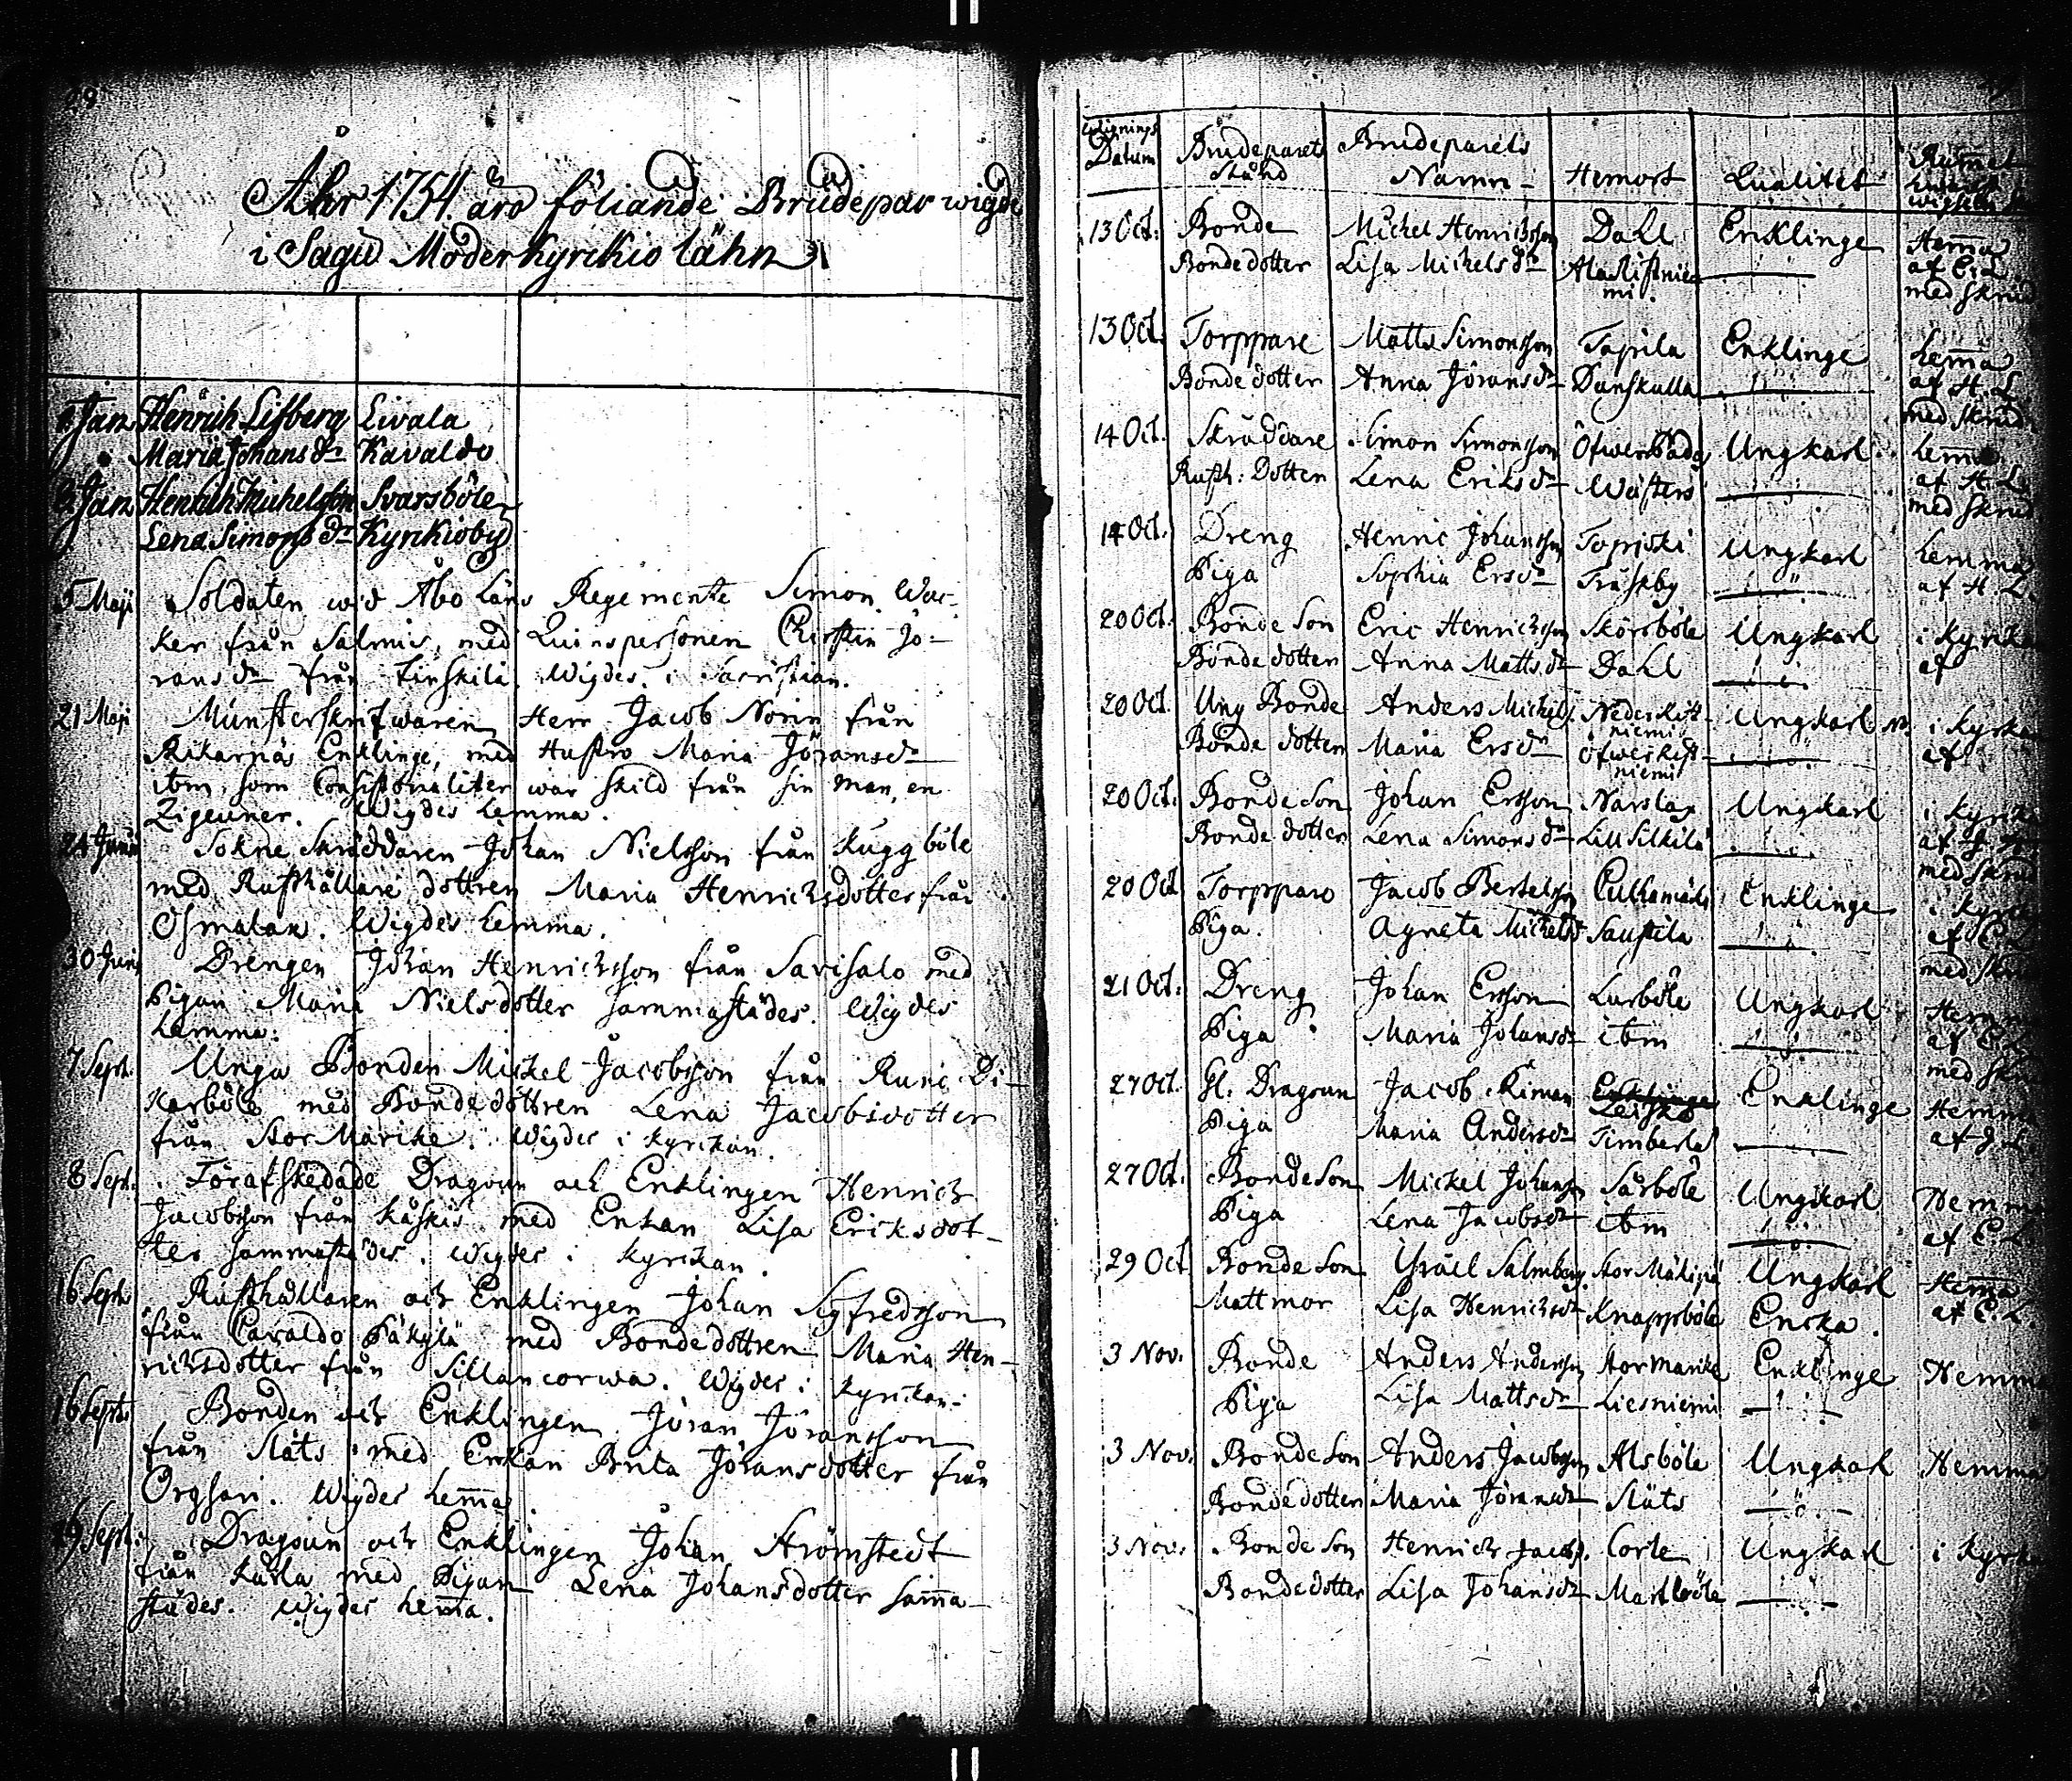 29
Åhr 1754 äro föliande Brudepar wigde
i Sagu Moderkyrkio lähn
1 Jan Henrich Lisberg Livala
Maria Johans dr Kavaldo
Jan Henrich Michelsson Svarsböle
Lena Simons dr Kyrkioby
5 Maji Soldaten wid Åbo Läns Regemente Simon Wac-
ker från Salmis, med Quinspersonen Christin Jö-
rans dr från Finskila. Wigdes i Sacristian.
21 Maji Munsterskrifwaren Herr Jacob Norin från
Rikarnäs Enklinge, med Hustro Maria Jöransdr
ibm, som Consistorialiter war skild från sin man, en
Zigeuner. Wigdes hemma.
24 Junii Sokne Skräddaren Johan Nielsson från Kuggböle
med Rusthållare dottren Maria Henrichsdotter från
Osmalax. Wigdes hemma.
30 Junii Drengen Johan Henrichsson från Savisalo med
Pigan Maria Nielsdotter sammastädes. Wigdes
hemma.
7 Sept. Unga Bonden Mickel Jacobsson från Runi Di-
karböle med Bondedottren Lena Jacobsdotter
från Stor Marike. Wigdes i kyrkan.
8 Sept. Förafskedade Dragoun och Enklingen Henrich
Jacobsson från Kåskis med Enkan Lisa Eriksdot-
ter sammastädes. Wigdes i kyrkan.
16 Sept. Rusthållaren och Enklingen Johan Sigfredsson
från Cavaldo Päkylä med Bondedottren Maria Hen-
richsdotter från Sillancorwa. Wigdes i kyrkan.
16 Sept. Bonden och Enklingen Jöran Jöransson
från Släts med Enkan Brita Johansdotter från
Orgsari. Wigdes hema
29 Sept. Dragoun och Enklingen Johan Strömstedt
från Karla med Pigan Lena Johansdotter sama-
städes. Wigdes hema.
Wignings Datum Brudeparets Stånd Brudeparets Namn Hemort Qualitet
13 Oct. Bonde Michel Henrichsson Dahl Enklinge Hema
Bondedotter Lisa Michels dr Alakistnie- af E. L.
mi. med skrud
13 Oct. Torppare Matts Simonsson Tapila Enklinge hema
Bondedotter Anna Jörans dr Danskulla af H. L.
med skrud
14 Oct. Skräddare Simon Simonsson Öfwer Pada Ungkarl hema
Rusth: Dotter Lena Eriks dr Wästers af H. L.
med skrud
14 Oct. Dreng Henric Johansson Topjoki Ungkarl hemma
Piga Sophia Ersdr Träskby af H. L.
20 Oct. Bonde Son Eric Henrichsson Skörsböle Ungkarl i kyrkan
Bonde dotter Anna Matts dr Dahl af
20 Oct. Ung Bonde Anders Michels. Neder Kist- Ungkarl i kyrkan
niemi
Bonde dotter Maria Ersdr Öfwerkist- af
niemi
20 Oct. Bonde Son Johan Ersson Närslax Ungkarl i kyrk
Bonde dotter Lena Simons dr Lill Silkilä af
med skrud
20 Oct Torppare Jacob Bertelsson Enklinge i kyrk
Piga. Agneta Michelsdr Saustila af E. L
med
21 Oct. Dreng Johan Ersson Larböle Ungkarl Hem
Piga Maria Johansdr ibm af E. L
med
27 Oct. Gl: Dragoun Jacob Riman Enklinge Hemma
Piga Maria Andersdr Timberla af
27 Oct. Bonde Son Mickel Johansson Särböle Ungkarl Hem
Piga Lena Jacobsdr ibm af E. L
29 Oct Bonde Son Ysräel Salmberg Stor Mäkipä Ungkarl Hema
Mattmor Lisa Henrichsdr Knappböle Encka. af E. L.
3 Nov. Bonde Anders Andersson Stormarike Enklinge Hemma
Piga Lisa Mattsdr Liesniemi
3 Nov. Bonde Son Anders Jacobsson Alsböle Ungkarl Hemma
Bondedotter Maria Jöransdr Släts
3 Nov. Bonde Son Henrich Jacobs. Corte Ungkarl i kyrk
Bondedotter Lisa Johansdr Martböle